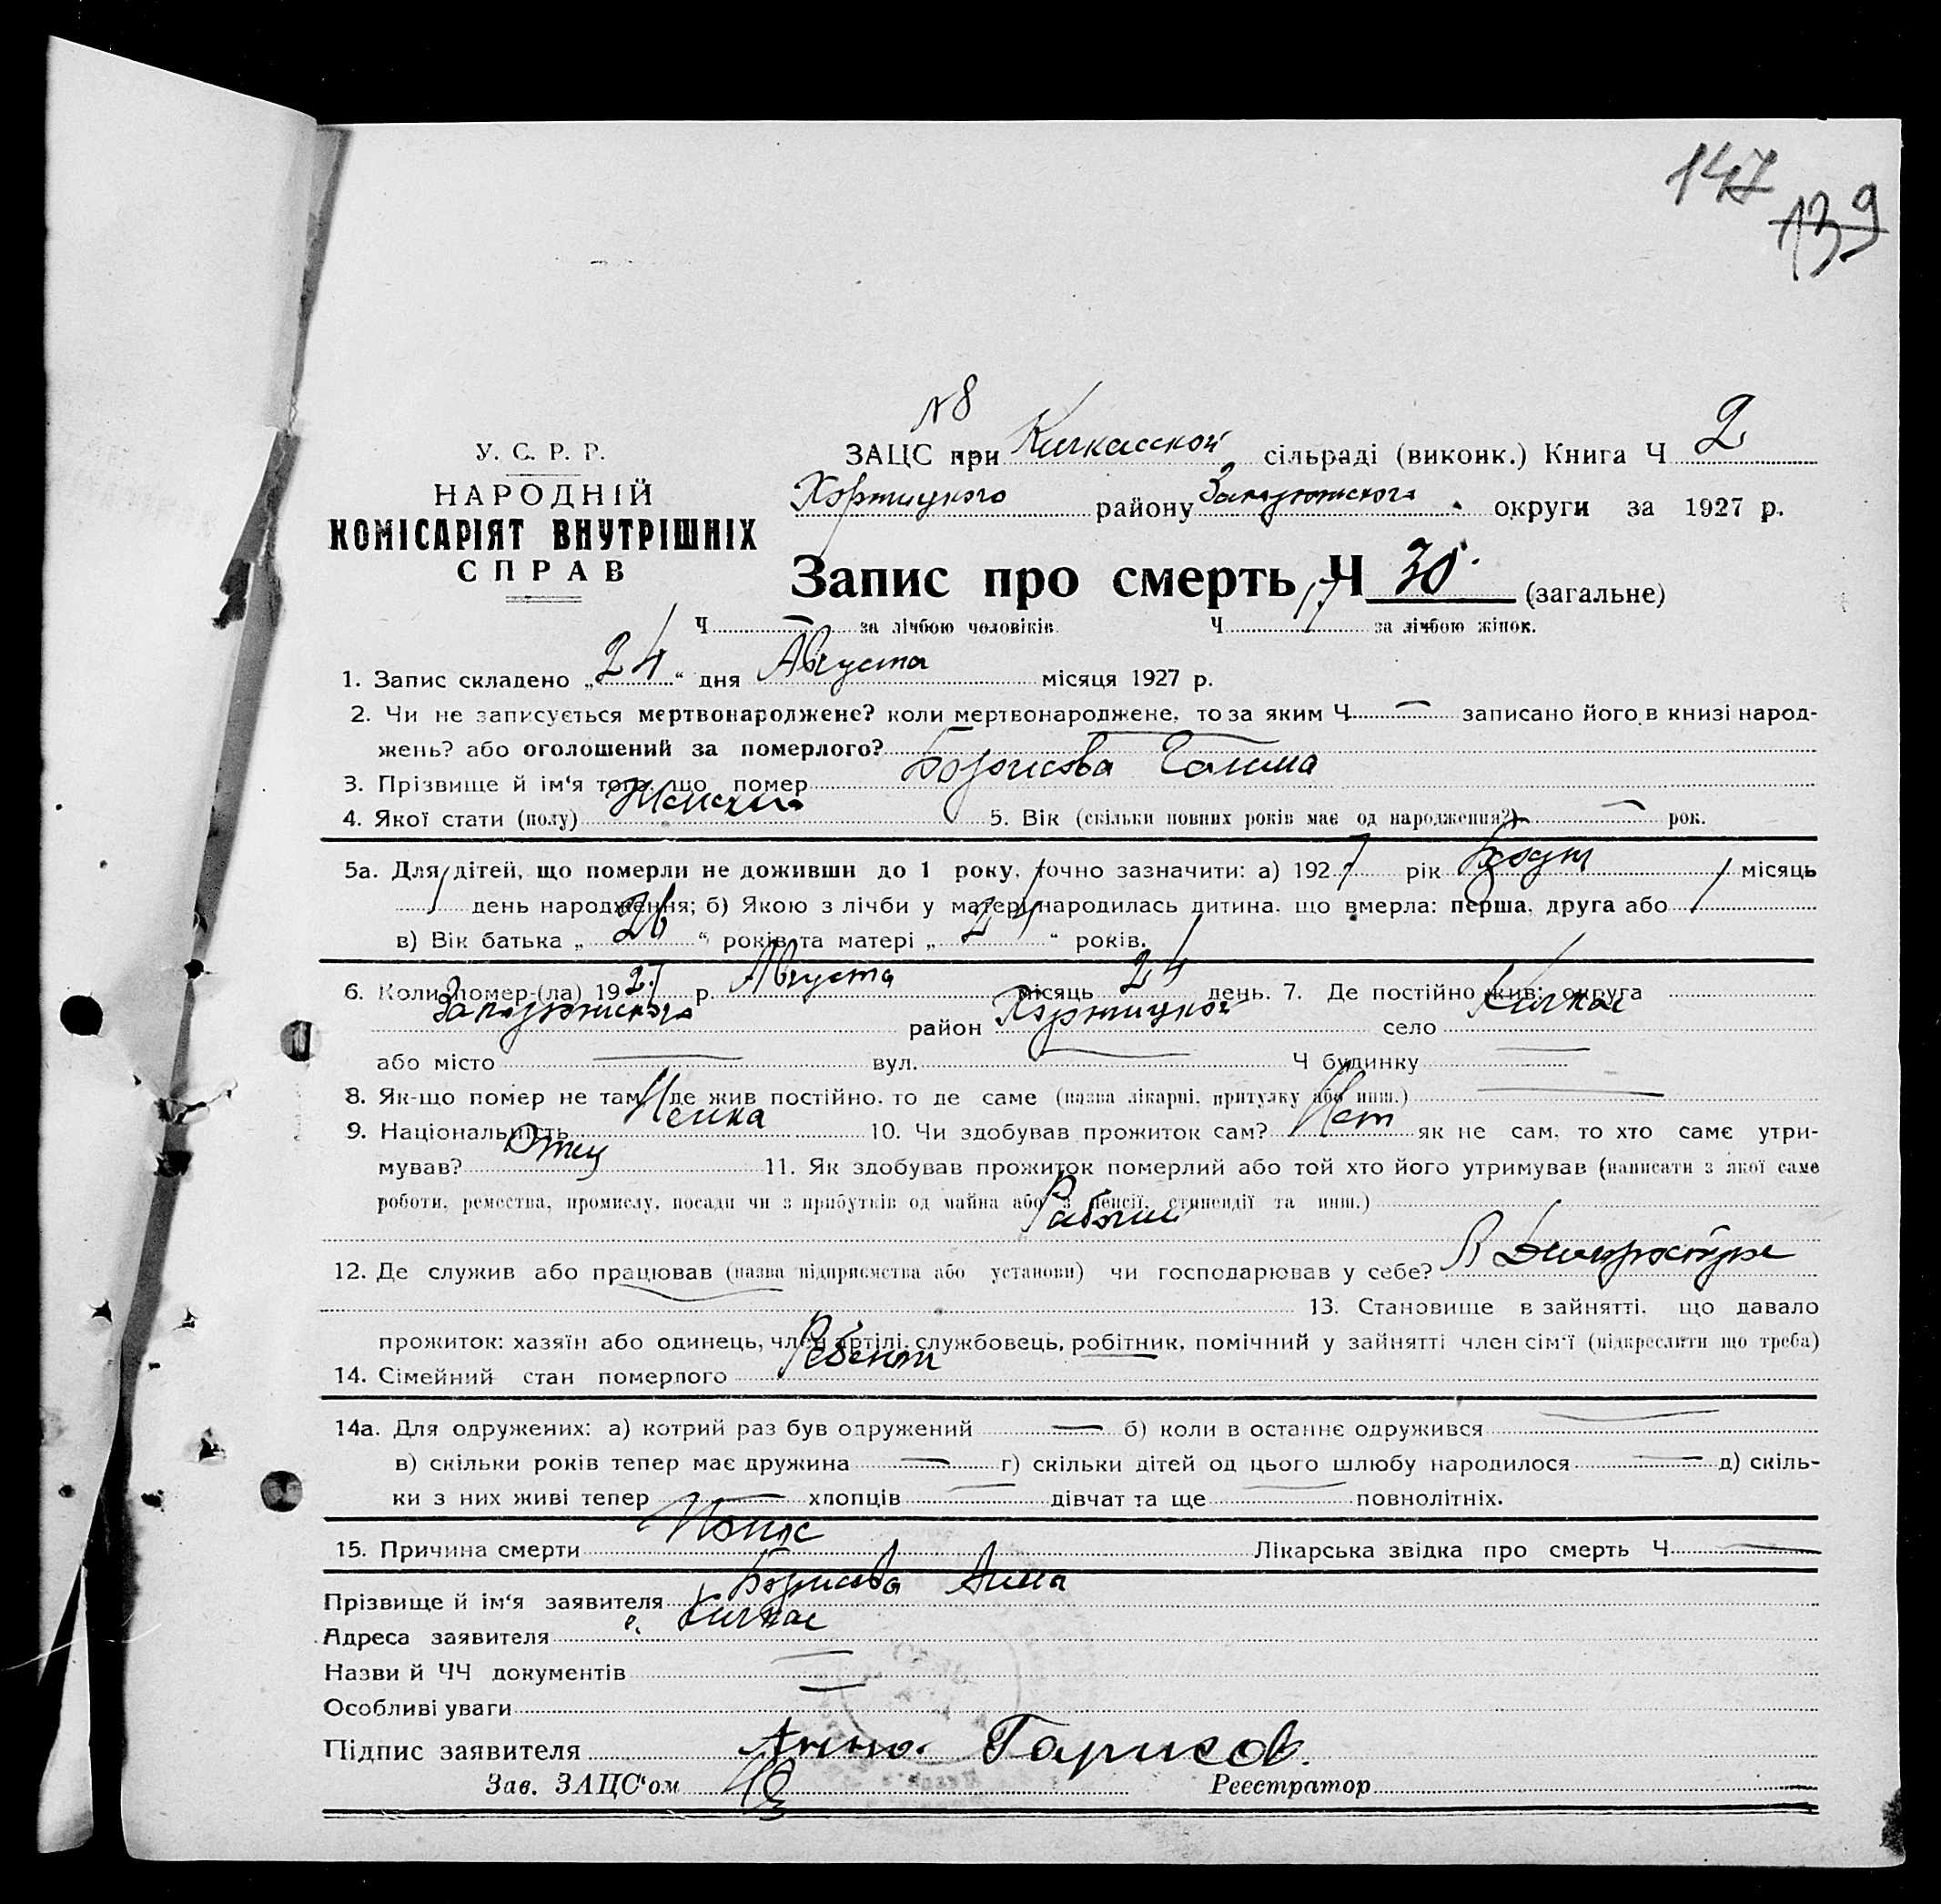 147
139
N 8
У. С. Р. Р.
НАРОДНІЙ
КОМІСАРІЯТ ВНУТРІШНІХ
СПРАВ
ЗАЦС при Кичкасской сільраді (виконк.) Книга Ч 2
Хортицкого району Запорожского округи за 1927 р.
Запис про смерть Ч 30 (загальне)
Ч — за лічбою чоловіків. Ч 17 за лічбою жінок.
1. Запис складено „24“ дня Августа місяця 1927 р.
2. Чи не записується мертвонароджене? коли мертвонароджене, то за яким Ч — записано його в книзі народ-
жень? або оголошений за померлого? —
3. Прізвище й ім'я того, що помер Борисова Галина
4. Якої стати (полу) Женский 5. Вік (скільки повних років має од народження?) — рок.
5а. Для дітей, що померли не доживши до 1 року, точно зазначити: а) 1927 рік місяць
день народження; б) Якою з лічби у матері народилась дитина, що вмерла: перша, друга або 1
в) Вік батька „26“ років та матері „24“ років.
6. Коли помер-(ла) 1927 р. Августа місяць 24 день. 7. Де постійно жив: округа
Запорожского район Хортицкой село Кичкас
або місто — вул. — Ч будинку —
8. Як-що помер не там, де жив постійно, то де саме (назва лікарні, притулку або инш.) —
9. Національність Немка 10. Чи здобував прожиток сам? Нет як не сам, то хто саме утри-
мував? Отец 11. Як здобував прожиток померлий або той хто його утримував (написати з якої саме
роботи, ремества, промислу, посади чи з прибутків од майна або з пенсії, стипендії та инш.)
Рабочий
12. Де служив або працював (назва підприємства або установи) чи господарював у себе? В Днепрострое
13. Становище в зайнятті, що давало
прожиток: хазяїн або одинець, член артілі, службовець, робітник, помічний у зайнятті член сім'ї (підкреслити що треба)
14. Сімейний стан померлого Ребенок
14а. Для одружених: а) котрий раз був одружений — б) коли в останнє одружився —
в) скільки років тепер має дружина — г) скільки дітей од цього шлюбу народилося — д) скіль-
ки з них живі тепер — хлопців — дівчат та ще — повнолітніх.
15. Причина смерти Понос Лікарська звідка про смерть Ч —
Прізвище й ім'я заявителя Борисова Анна
Адреса заявителя с. Кичкас
Назви й ЧЧ документів —
Особливі уваги —
Підпис заявителя Анна Гарисов.
Зав. ЗАЦС'ом Реєстратор